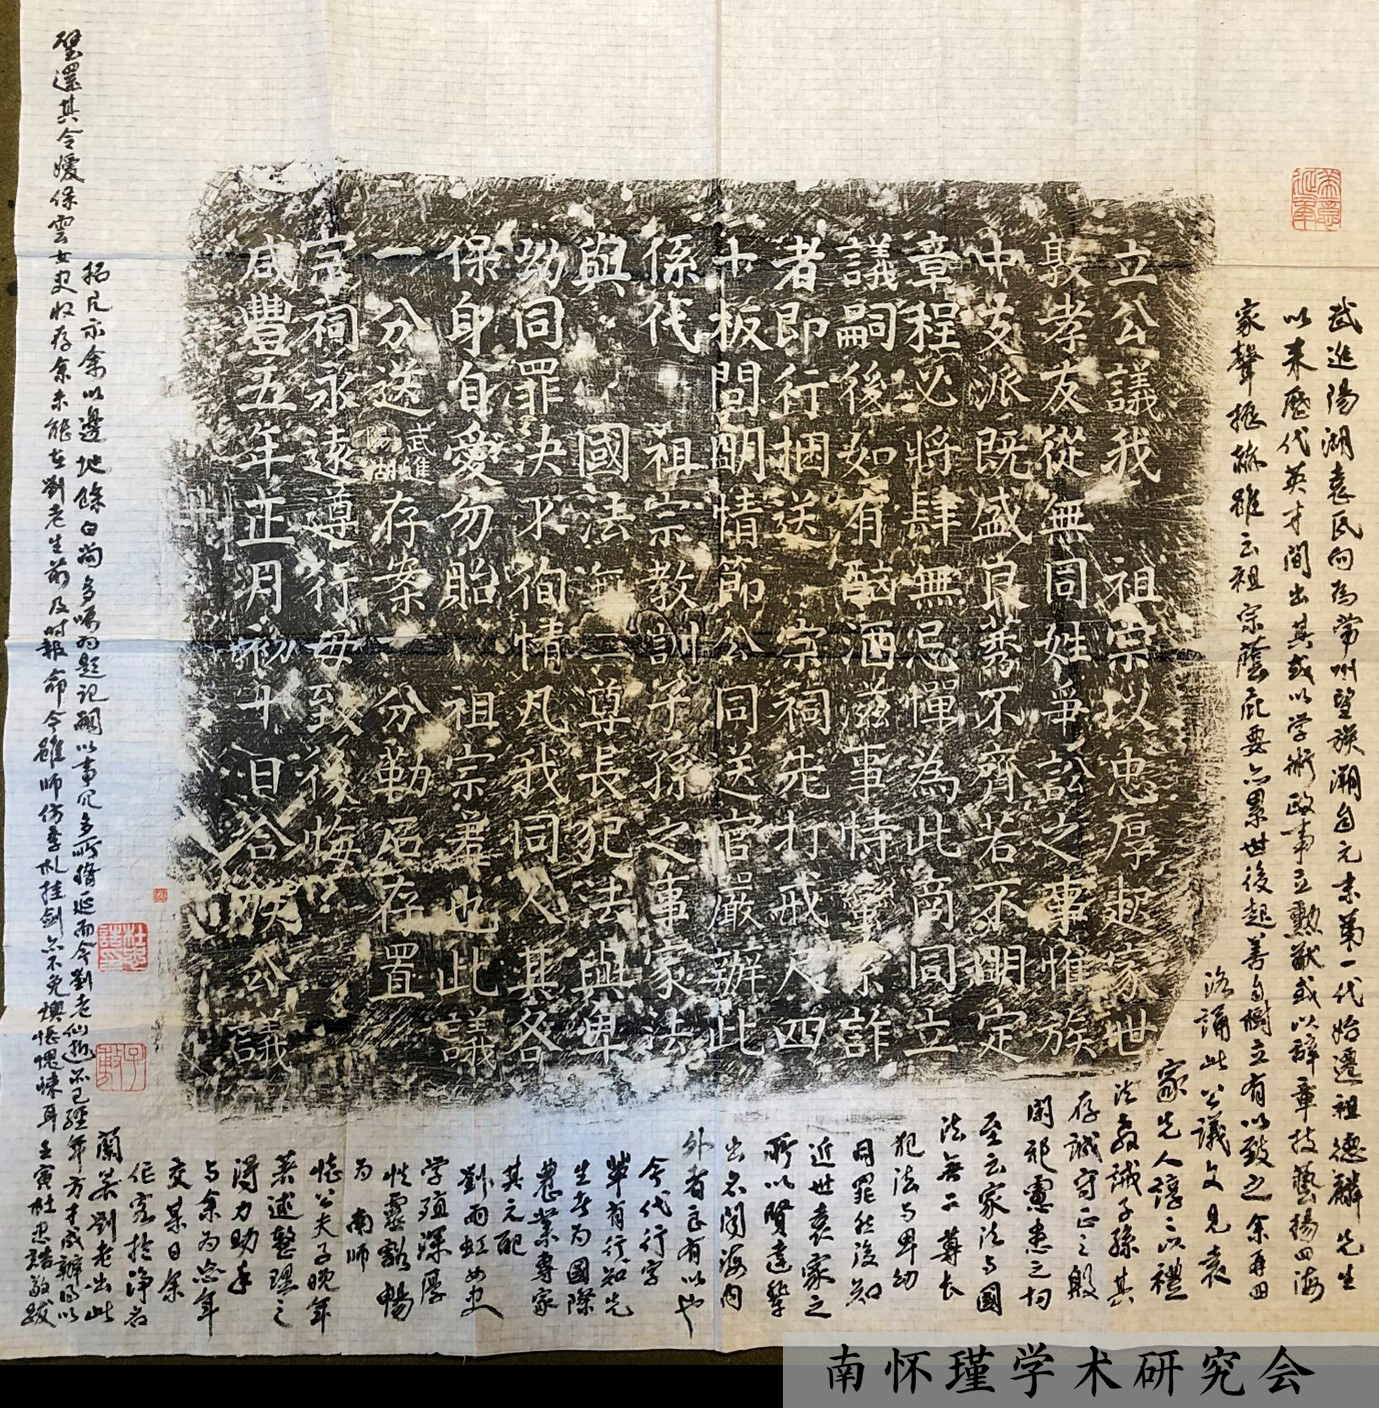 立公議我 祖宗以忠厚起家世
敦孝友從無同姓爭訟之事惟族
中支派既盛良莠不齊若不明定
章程必將肆無忌憚為此商同立
議嗣後如有酗酒滋事恃蠻索詐
者即行捆送 宗祠先打戒尺四
十板問明情節公同送官嚴辦此
係代 祖宗教訓子孫之事家法
與 國法無二尊長犯法與卑
幼同罪決不徇情凡我同人其各
保身自愛勿貽 祖宗羞也此議
一分送武進陽湖存案一分勒石存置
宗祠永遠遵行毋致後悔
咸豐五年正月初十日合族公議
武進陽湖袁氏向為常州望族溯自元末第一代始遷祖德麟先生
以来歷代英才間出其或以学術政事立勲猷或以辞章技藝揚四海
家聲振赫雖云祖宗蔭庇要亦累世後起善自樹立有以致之余再四
洛誦此公議文見袁
家先人諄諄以禮
法教誡子孫其
存誠守正之殷
閑邪慮患之切
至云家法与國
法無二尊長
犯法与卑幼
同罪然後知
近世袁家之
所以賢達輩
出名聞海内
外者良有以也
今代行字
輩有行知先
生者為國際
農業專家
其元配
劉雨虹女史
学殖深厚
性靈豁暢
為 南師
懷公夫子晚年
著述整理之
得力助手
与余為忘年
交某日余
作客於淨名
蘭若劉老出此
拓片示余以邊地餘白尚多囑為題記嗣以事冗多所稽延而今劉老仙逝不已經年方才成辦得以
璧還其令嬡保雲女史收存余未能在劉老生前及时報命今雖師仿季札挂劍亦不免懊悵愧悚耳壬寅杜忠誥敬跋
南怀瑾学术研究会